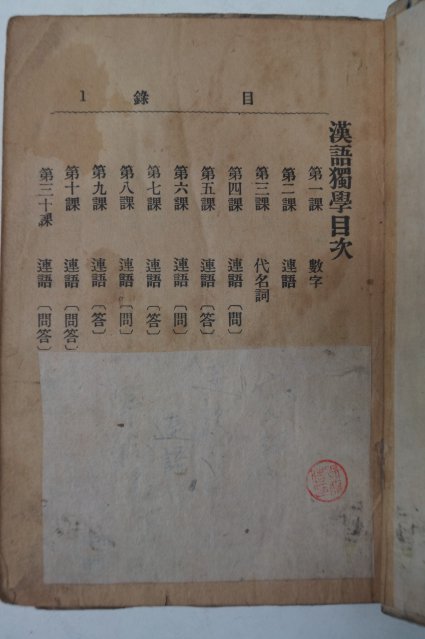 目錄 1
漢語獨學目次
第一課 數字
第二課 連語
第三課 代名詞
第四課 連語〔問〕
第五課 連語〔答〕
第六課 連語〔問〕
第七課 連語〔答〕
第八課 連語〔問〕
第九課 連語〔答〕
第十課 連語〔問答〕
第三十課 連語〔問答〕